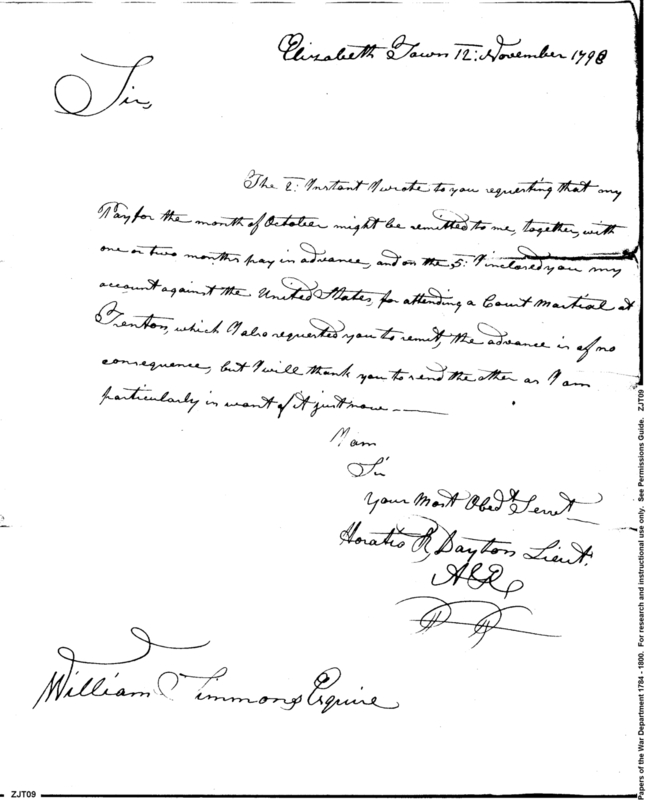 Elizabeth Town 12: November 1798
Sir,
The 2: Instant I wrote to you requesting that my
Pay for the month of October might be remitted to me, together, with
one or two months pay in advance, and on the 5: I inclosed you my
account against the United States, for attending a Court Martial at
Trenton, which I also requested you to remit, the advance is of no
consequence, but I will thank you to send the other as I am
particularly in want of it just now
I am
Sir
Your Most Obedt Servt
Horatio R Dayton Lieut.
William Simmons Esquire
ZJT09
Papers of the War Department 1784 - 1800. For research and instructional use only. See Permissions Guide. ZJT09